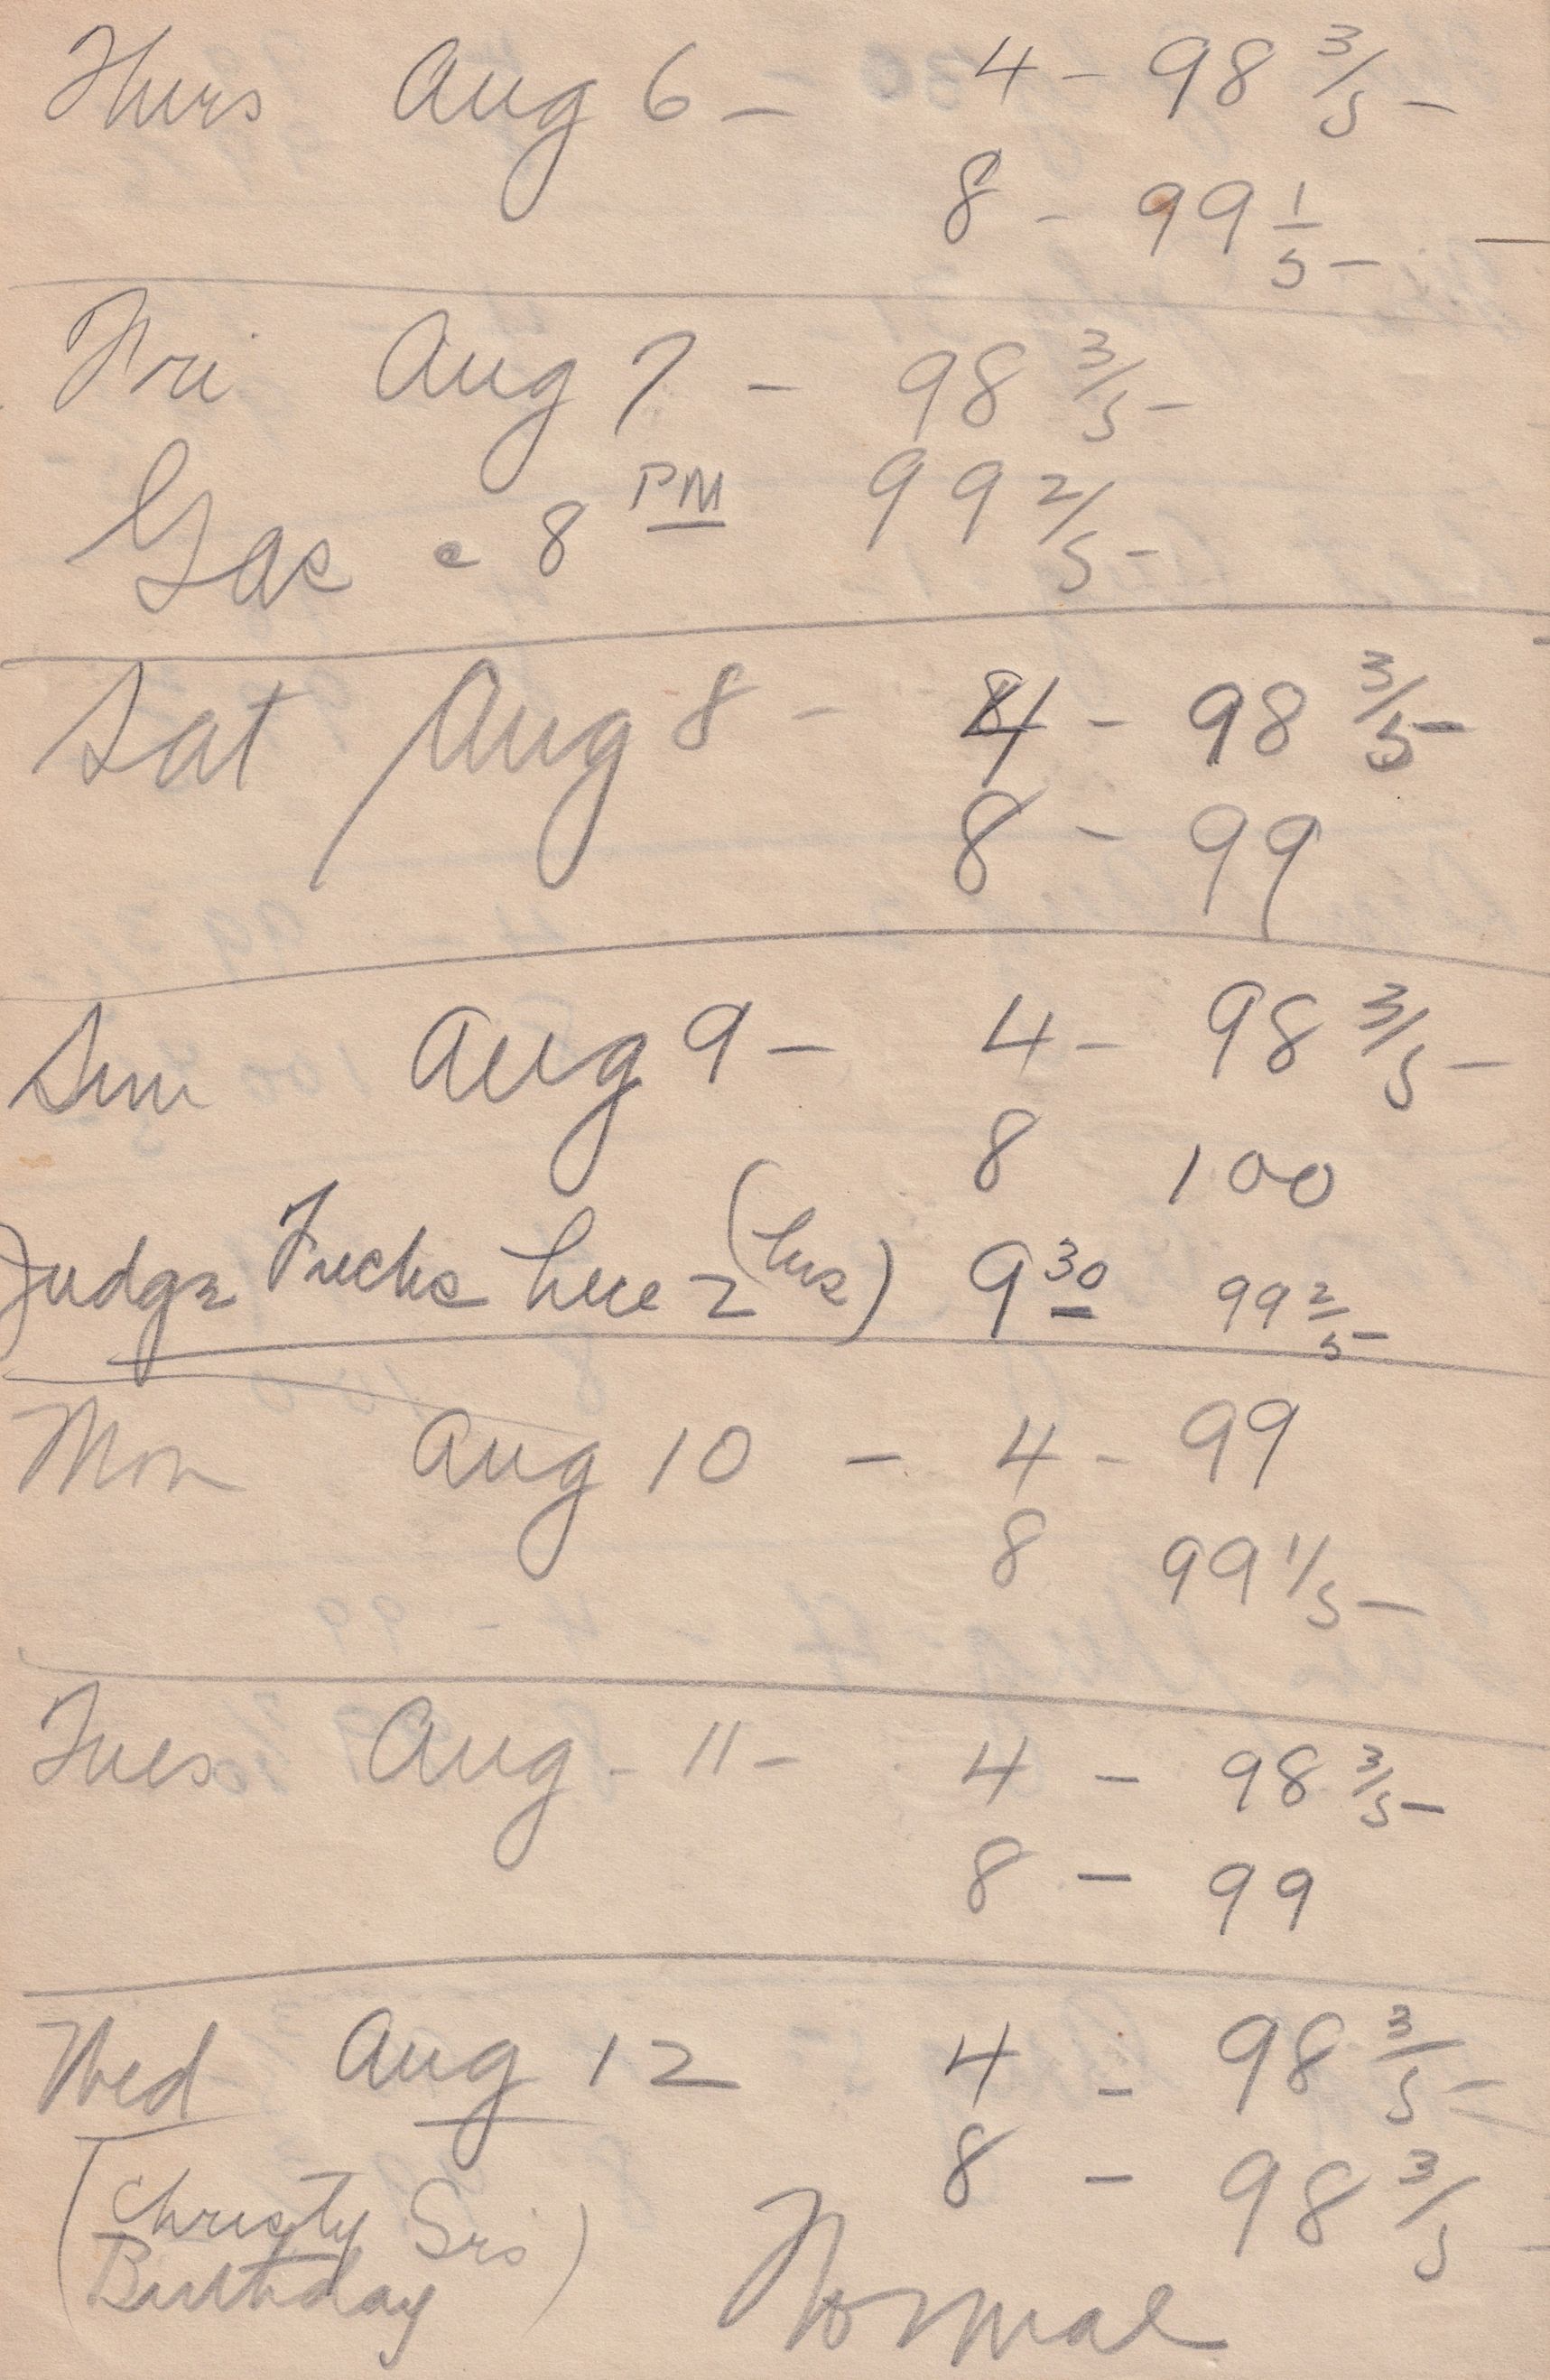 Thurs Aug 6 - 4 - 98 3/5 -
8 - 99 1/5 -
Fri Aug 7 - 98 3/5 -
Gas 8 PM 99 2/5 -
Sat Aug 8 - 4 - 98 3/5 -
8 - 99
Sun Aug 9 - 4 - 98 3/5 -
8 100
Judge Fuchs here 2 (hrs) 9 30 99 2/5 -
Mon Aug 10 - 4 - 99
8 99 1/5 -
Tues Aug - 11 - 4 - 98 3/5 -
8 - 99
Wed Aug 12 4 - 98 3/5 -
8 - 98 3/5
(Christy Srs
Birthday)
Normal